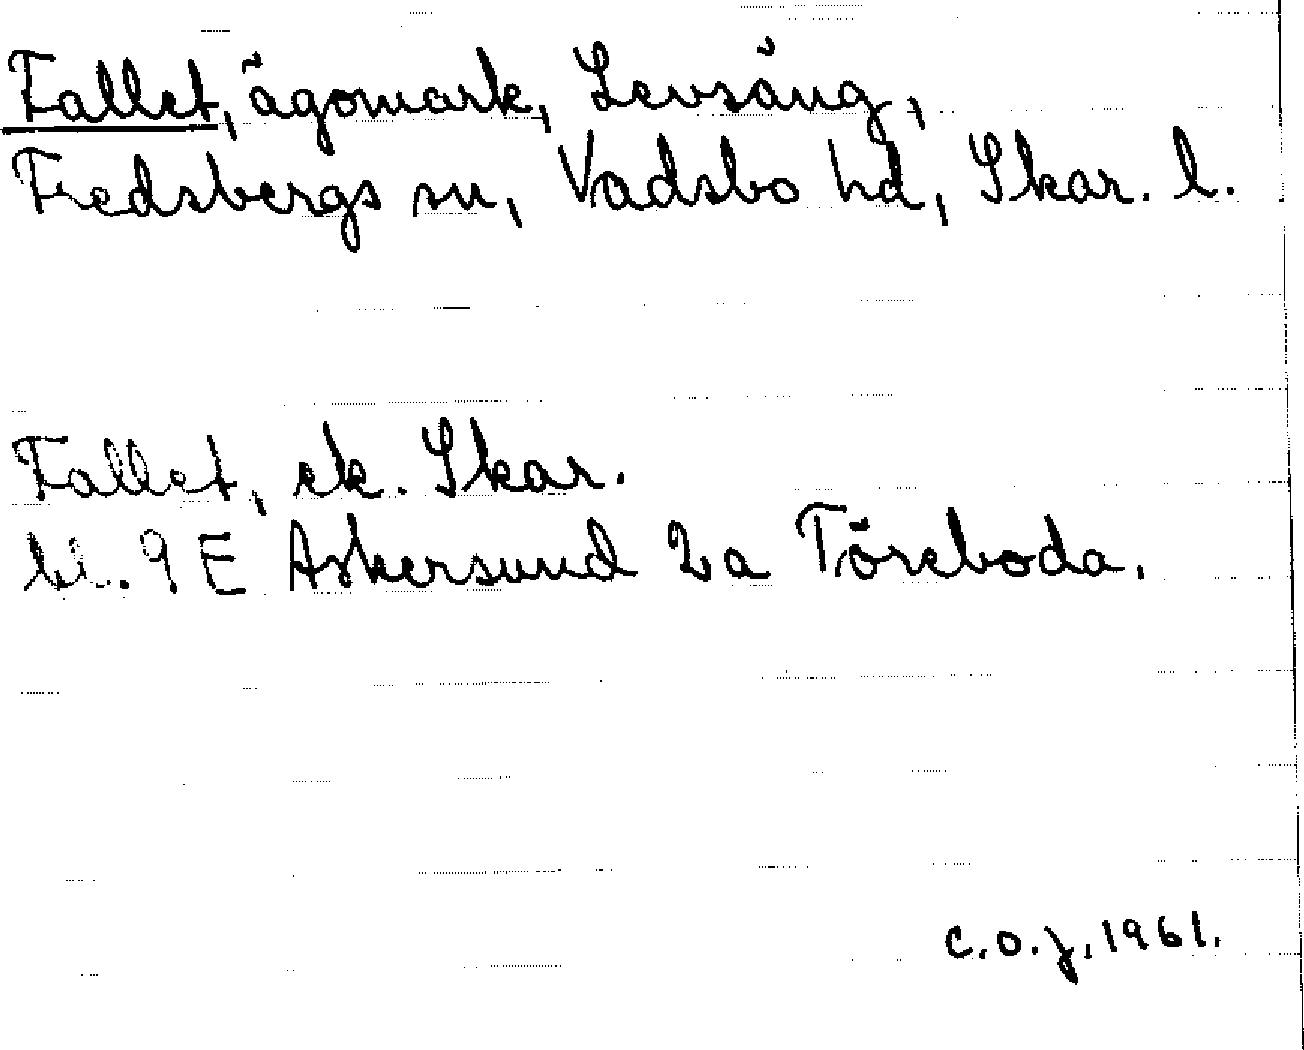 Fallet, ägomark, Levsäng,
Fredsbergs sn, Vadsbo hd, Skar. l.
Fallet, ek. Skar.
bl. 9 E Askersund 2 a Töreboda.
C.O.J. 1961.